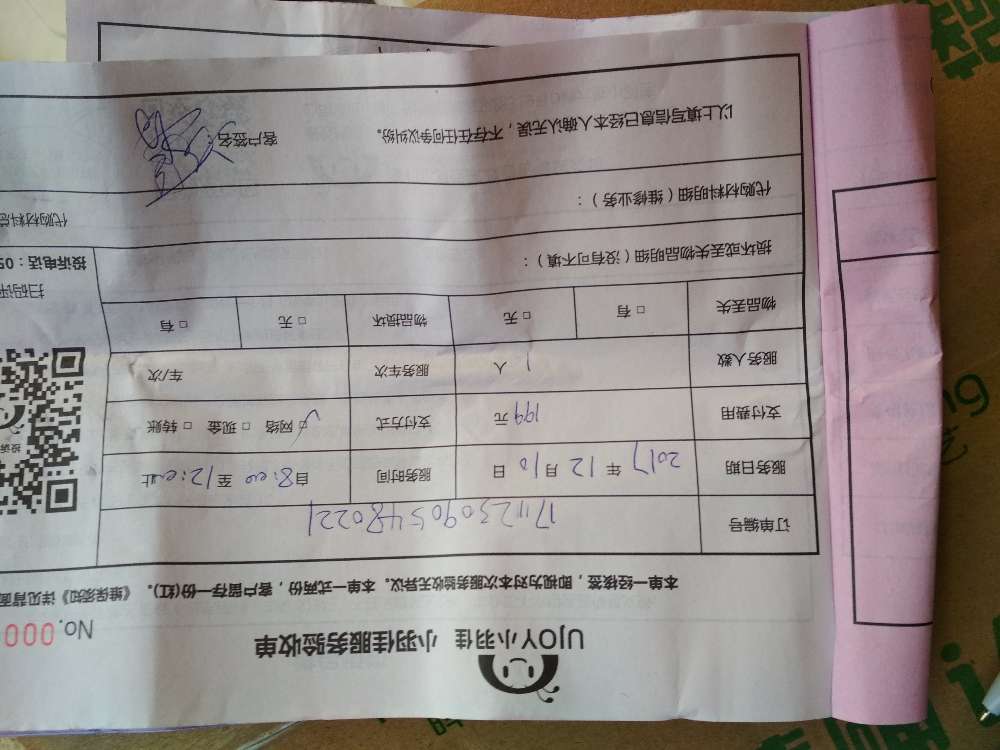 UJOY小羽佳 小羽佳服务验收单
No.000
本单一经核签，即视为对本次服务验收无异议。本单一式两份，客户留存一份(红)。《维保须知》详见背面
订单编号 1711230905480221
服务日期 2017 年 12 月 10 日 服务时间 自8:00 至 12:00止
支付费用 199 元 支付方式 ☑ 网络 □ 现金 □ 转账
服务人数 1 人 服务车次 车/次
物品丢失 □ 有 □ 无 物品损坏 □ 无 □ 有
损坏或丢失物品明细（没有可不填）：
代购材料明细（维修业务）：
以上填写信息已经本人确认无误，不存在任何争议纠纷。 客户签名：
投诉
扫码评
投诉电话：05
代购材料总